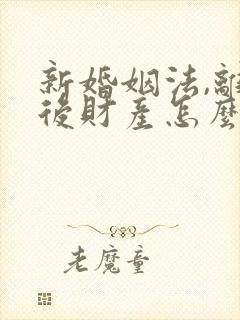 新婚姻法,離
後財產怎麼
老魔童